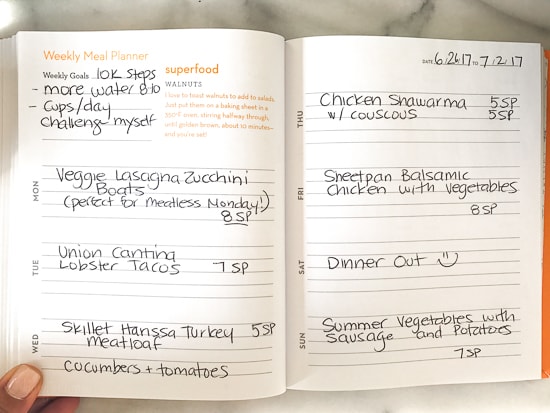 Weekly Meal Planner
Weekly Goals 10K Steps
- more water 8-10
- cups/day
challenge myself
superfood
WALNUTS
I love to toast walnuts to add to salads.
Just put them on a baking sheet in a
350°F oven, stirring halfway through,
until golden brown, about 10 minutes—
and you're set!
MON
Veggie Lasagna Zucchini
Boats
(perfect for meatless Monday!)
8 SP
TUE
Union Cantina
Lobster Tacos 7 SP
WED
Skillet Harissa Turkey 5 SP
meatloaf
cucumbers + tomatoes
DATE 6/26/17 TO 7/2/17
THU
Chicken Shawarma 5 SP
w/ couscous 5 SP
FRI
Sheetpan Balsamic
Chicken with Vegetables
8 SP
SAT
Dinner Out
SUN
Summer Vegetables with
Sausage and Potatoes
7 SP